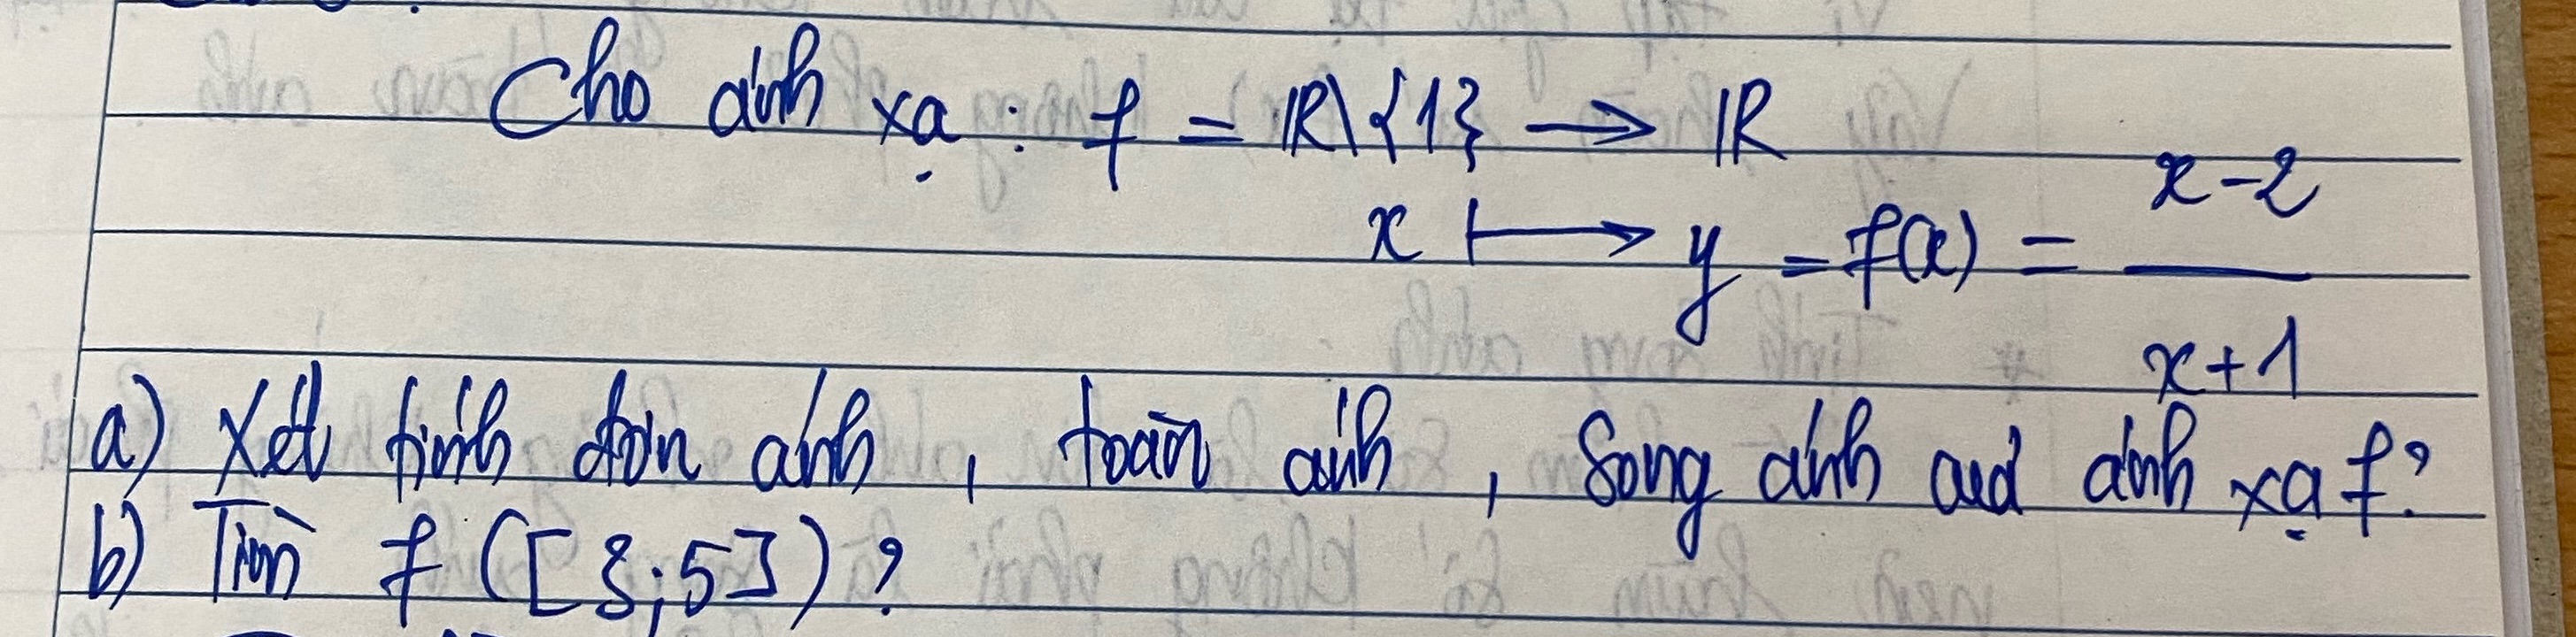 Cho ánh xạ : f = ℝ\{1} → ℝ
x ↦ y = f(x) = x-2 / x+1
a) Xét tính đơn ánh, toàn ánh, Song ánh của ánh xạ f?
b) Tìm f ([3;5])?